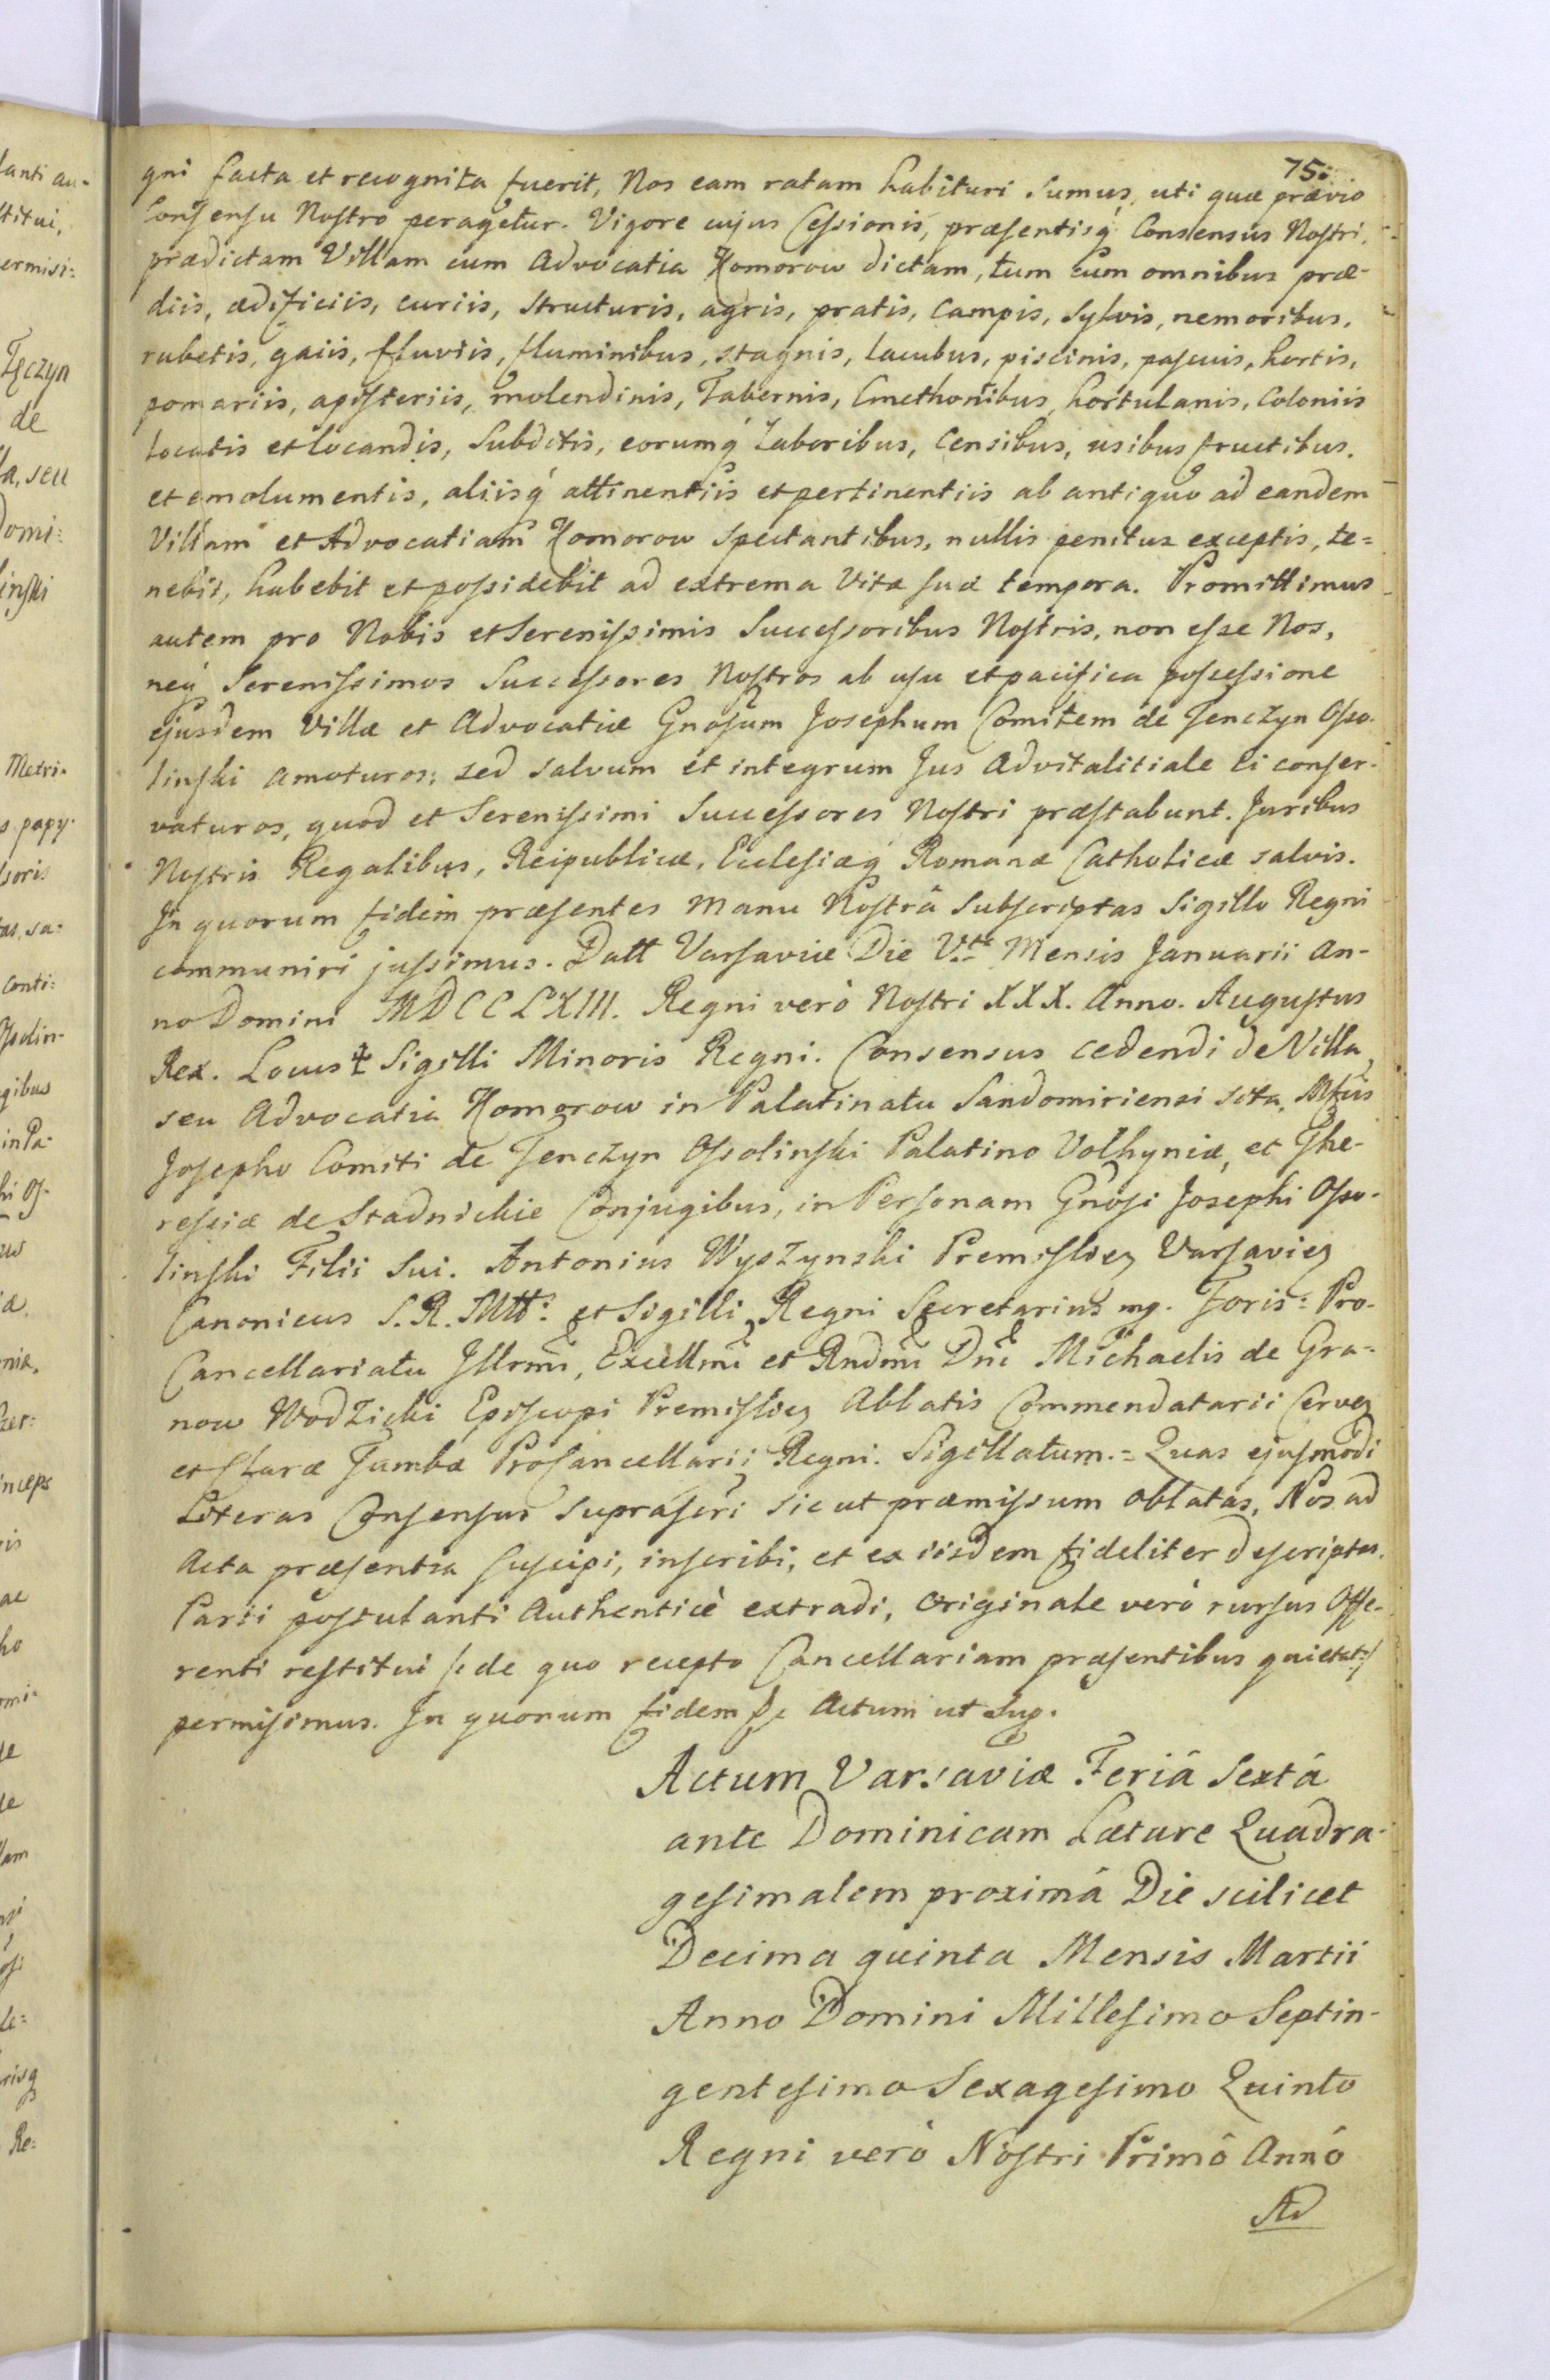 75.
gni facta et recognita fuerit, Nos eam ratam habituri sumus, uti quæ prævio
Consensu Nostro peragetur. Vigore cujus Cessionis, præsentisq́ Consensus Nostri,
prædictam Villam cum Advocatia Komorow dictam, tum cum omnibus præ-
diis, ædificiis, curiis, structuris, agris, pratis, Campis, Sylvis, nemoribus,
rubetis, gaiis, fluviis, fluminibus, stagnis, lacubus, piscinis, pascuis, hortis,
pomariis, apisteriis, molendinis, Tabernis, Cmethonibus, hortulanis, Coloniis
locatis et locandis, Subditis, eorumq́ Laboribus, Censibus, usibus fructibus,
et emolumentis, aliisq́ attinentiis et pertinentiis ab antiquo ad eandem
Villam et Advocatiam Komorow Spectantibus, nullis penitus exceptis, te=
nebit, habebit et possidebit ad extrema Vitæ suæ tempora. Promittimus
autem pro Nobis et Serenissimis Successoribus Nostris, non esse Nos,
neq́ Serenissimos Successores Nostros ab usu et pacifica possessione
ejusdem Villæ et Advocatiæ Gnosum Josephum Comitem de Tenczyn Osso-
linski amoturos; sed salvum et integrum Jus Advitalitiale Ei conser-
vaturos, quod et Serenissimi Successores Nostri præstabunt. Juribus
Nostris Regalibus, Reipublicæ, Ecclesiæq́ Romanæ Catholicæ salvis.
In quorum fidem præsentes Manu Nostrâ Subscriptas Sigillo Regni
communiri jussimus. Datt Varsaviæ Die V.ta Mensis Januarii An-
no Domini MDCCLXIII. Regni verò Nostri XXX. Anno. Augustus
Rex. Locus ✝ Sigilli Minoris Regni. Consensus cedendi de Villa,
seu Advocatia Komorow in Palatinatu Sandomiriensi sita, Mtus
Josepho Comiti de Tenczyn Ossolinski Palatino Volhyniæ, et The-
resiæ de Stadnickie Conjugibus, in Personam Gnosi Josephi Osso-
linski Filii Sui. Antonius Wyszynski Premislien Varsavien
Canonicus S. R. Mtt: et Sigilli Regni Secretarius mp. Foris: Pro-
Cancellariatu Illrmi, Excellmi et Rndmi Dni Michaelis de Gra=
now Wodzicki Episcopi Premislien Abbatis Commendatarii Cerven
et Claræ Tumbæ ProCancellarii Regni. Sigillatum.= Quas ejusmodi
Literas Consensus Suprascri sic ut præmissum oblatas, Nos ad
Acta præsentia suscipi, inscribi, et ex iisdem fideliter descriptas
Parti postulanti Authenticè extradi, originale verò rursus Offe-
renti restitui /: de quo recepto Cancellariam præsentibus quietat:/
permisimus. In quorum fidem &c Actum ut Sup.
Actum Varsaviæ Feriâ Sextâ
ante Dominicam Læture Quadra-
gesimalem proximâ Die scilicet
Decima quinta Mensis Martii
Anno Domini Millesimo Septin-
gentesimo Sexagesimo Quinto
Regni verò Nostri Primô Annô
Ad